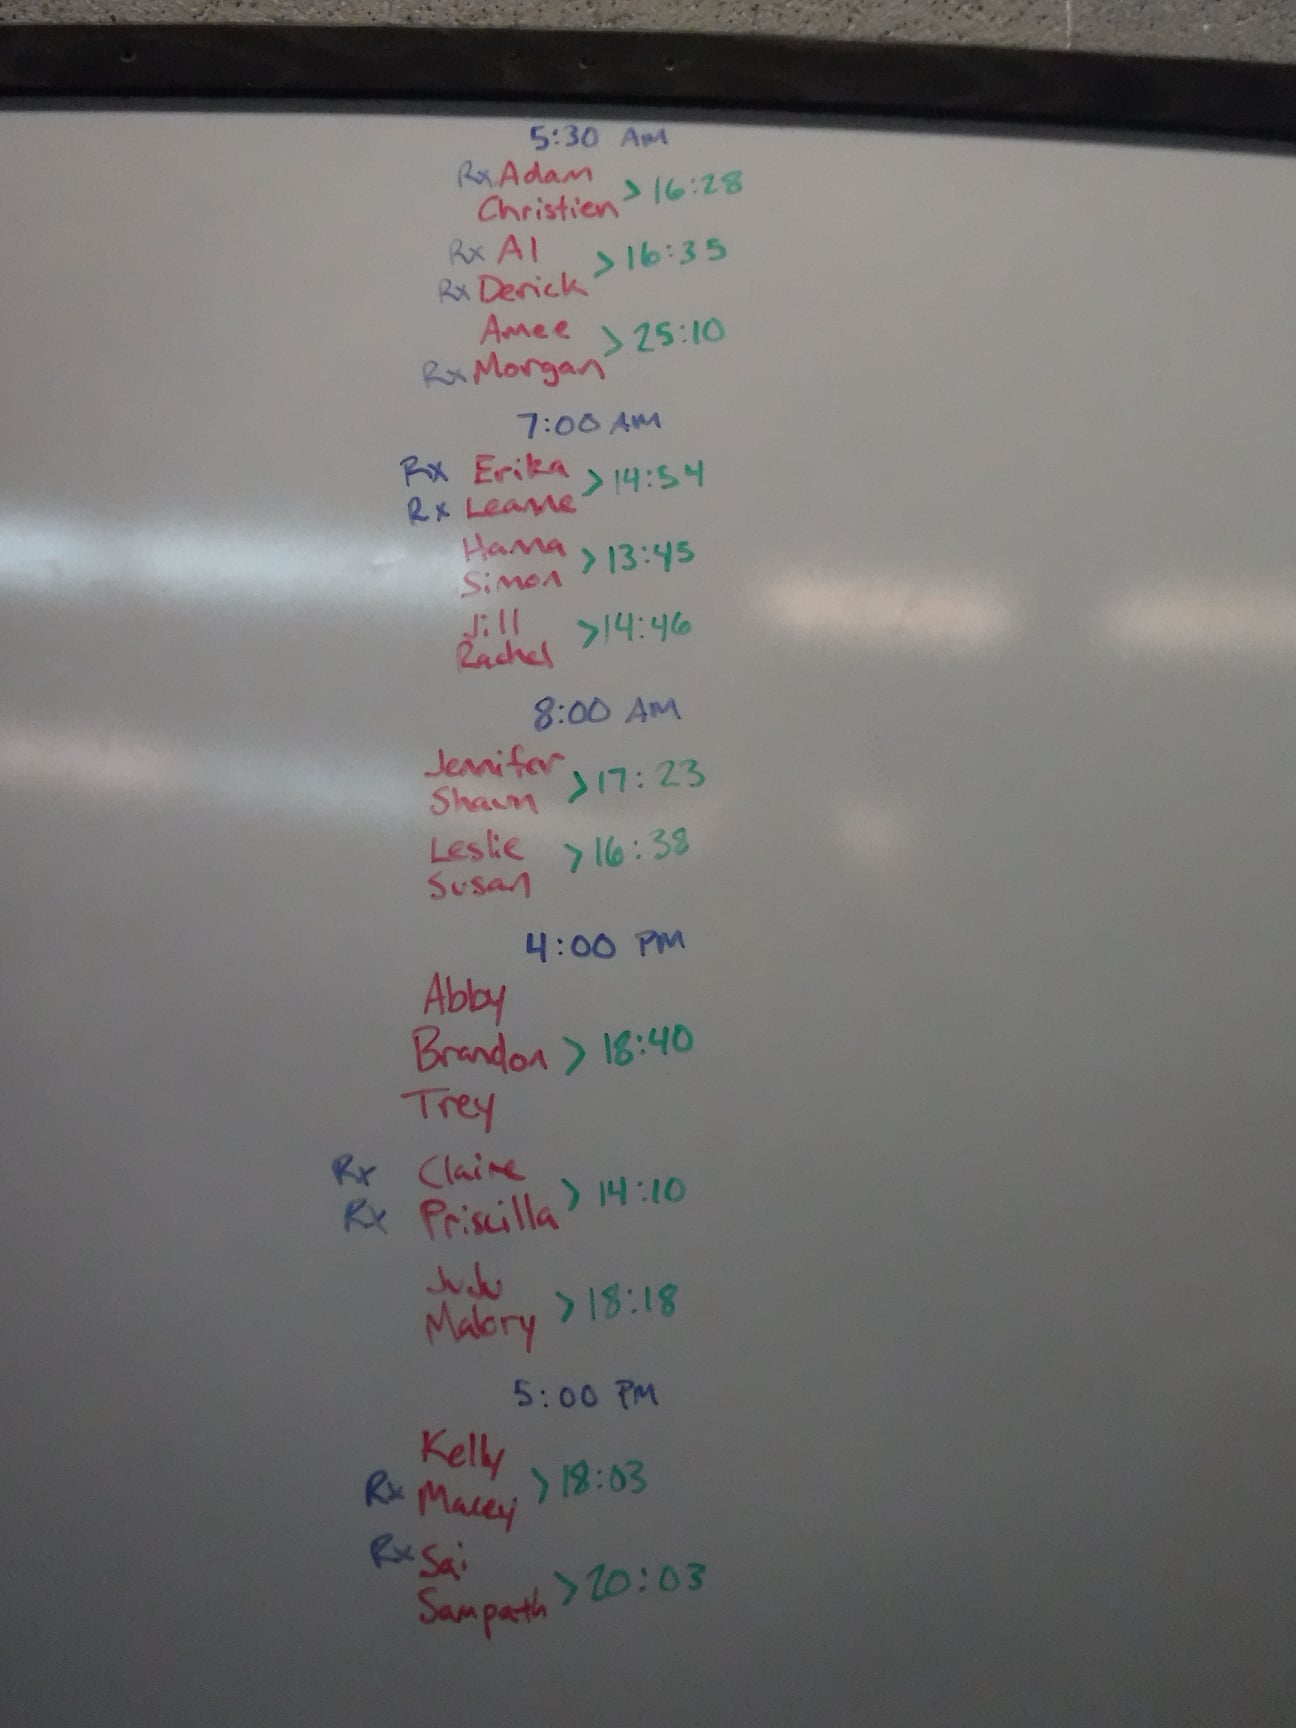 5:30 AM
Rx Adam
Christien > 16:28
Rx Al
Rx Derick > 16:35
Amee
Rx Morgan > 25:10
7:00 AM
Rx Erika
Rx Leanne > 14:54
Hanna
Simon > 13:45
Jill
Rachel > 14:46
8:00 AM
Jennifer
Shawn > 17:23
Leslie
Susan > 16:38
4:00 PM
Abby
Brandon > 18:40
Trey
Rx Claire
Rx Priscilla > 14:10
JuJu
Malory > 18:18
5:00 PM
Kelly
Rx Macey > 18:03
Rx Sai
Sampath > 20:03